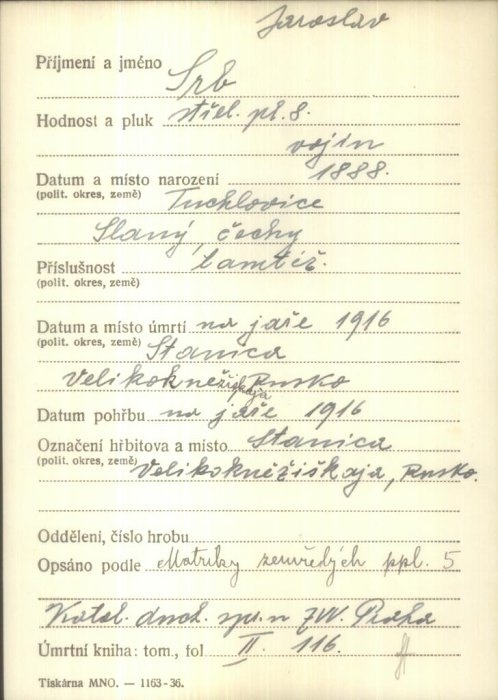 Jaroslav
Příjmení a jméno Srb
Hodnost a pluk střel. pl. 8.
vojín
Datum a místo narození 1888.
(polit. okres, země) Tuchlovice
Slaný, čechy
Příslušnost tamtéž.
(polit. okres, země)
Datum a místo úmrtí na jaře 1916
(polit. okres, země) Stanica
Velikokněžiškaja Rusko
Datum pohřbu na jaře 1916
Označení hřbitova a místo Stanica
(polit. okres, země) Velikokněžiškaja, Rusko.
Oddělení, číslo hrobu
Opsáno podle Matriky zemřelých ppl. 5
Katol. duch. spr. ZVV. Praha
Úmrtní kniha: tom., fol II. 116.
Tiskárna MNO. — 1163-36.